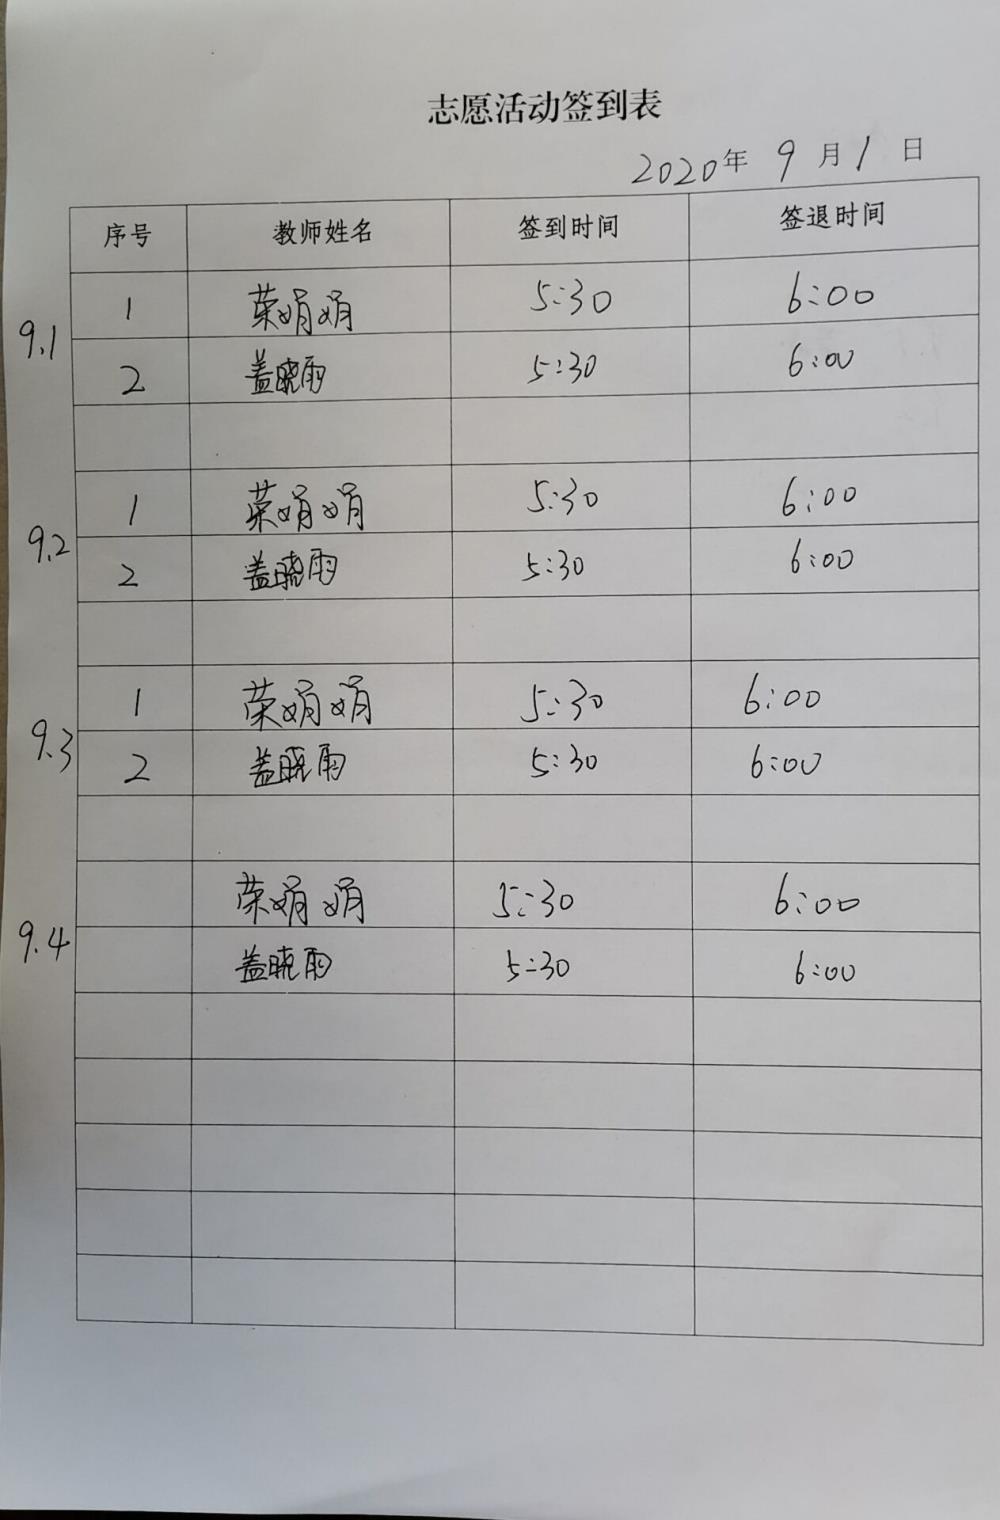 志愿活动签到表
2020年 9月1日
序号 教师姓名 签到时间 签退时间
9.1
1 荣娟娟 5:30 6:00
2 盖晓雨 5:30 6:00
9.2
1 荣娟娟 5:30 6:00
2 盖晓雨 5:30 6:00
9.3
1 荣娟娟 5:30 6:00
2 盖晓雨 5:30 6:00
9.4
荣娟娟 5:30 6:00
盖晓雨 5:30 6:00